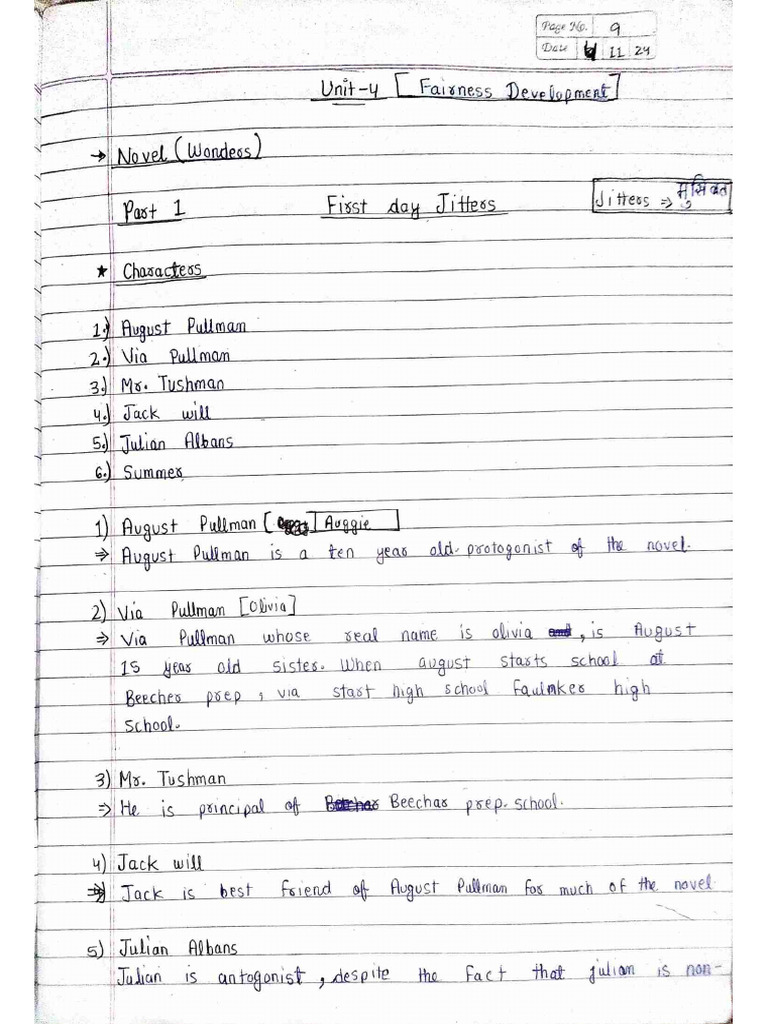 Page No. 9
Date 4 11 24
Unit-4 [Fairness Development]
→ Novel (Wonders)
Part 1 First day Jitters Jitters ⇒ मुसिबत
* Characters
1.) August Pullman
2.) Via Pullman
3.) Mr. Tushman
4.) Jack will
5.) Julian Albans
6.) Summer
1) August Pullman [ ] Auggie
⇒ August Pullman is a ten year old protogonist of the novel.
2) Via Pullman [Olivia]
⇒ Via Pullman whose real name is olivia and, is August
15 year old sister. When august starts school at
Beecher prep, via start high school Faulnker high
school.
3) Mr. Tushman
⇒ He is principal of Beechar Beechar prep. school.
4) Jack will
⇒ Jack is best friend of August Pullman for much of the novel
5) Julian Albans
Julian is antogonist, despite the fact that julian is non-